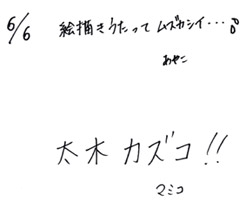 6/6 絵描きうたって ムズカシイ・・・
あやこ
太木 カズコ!!
マミコ